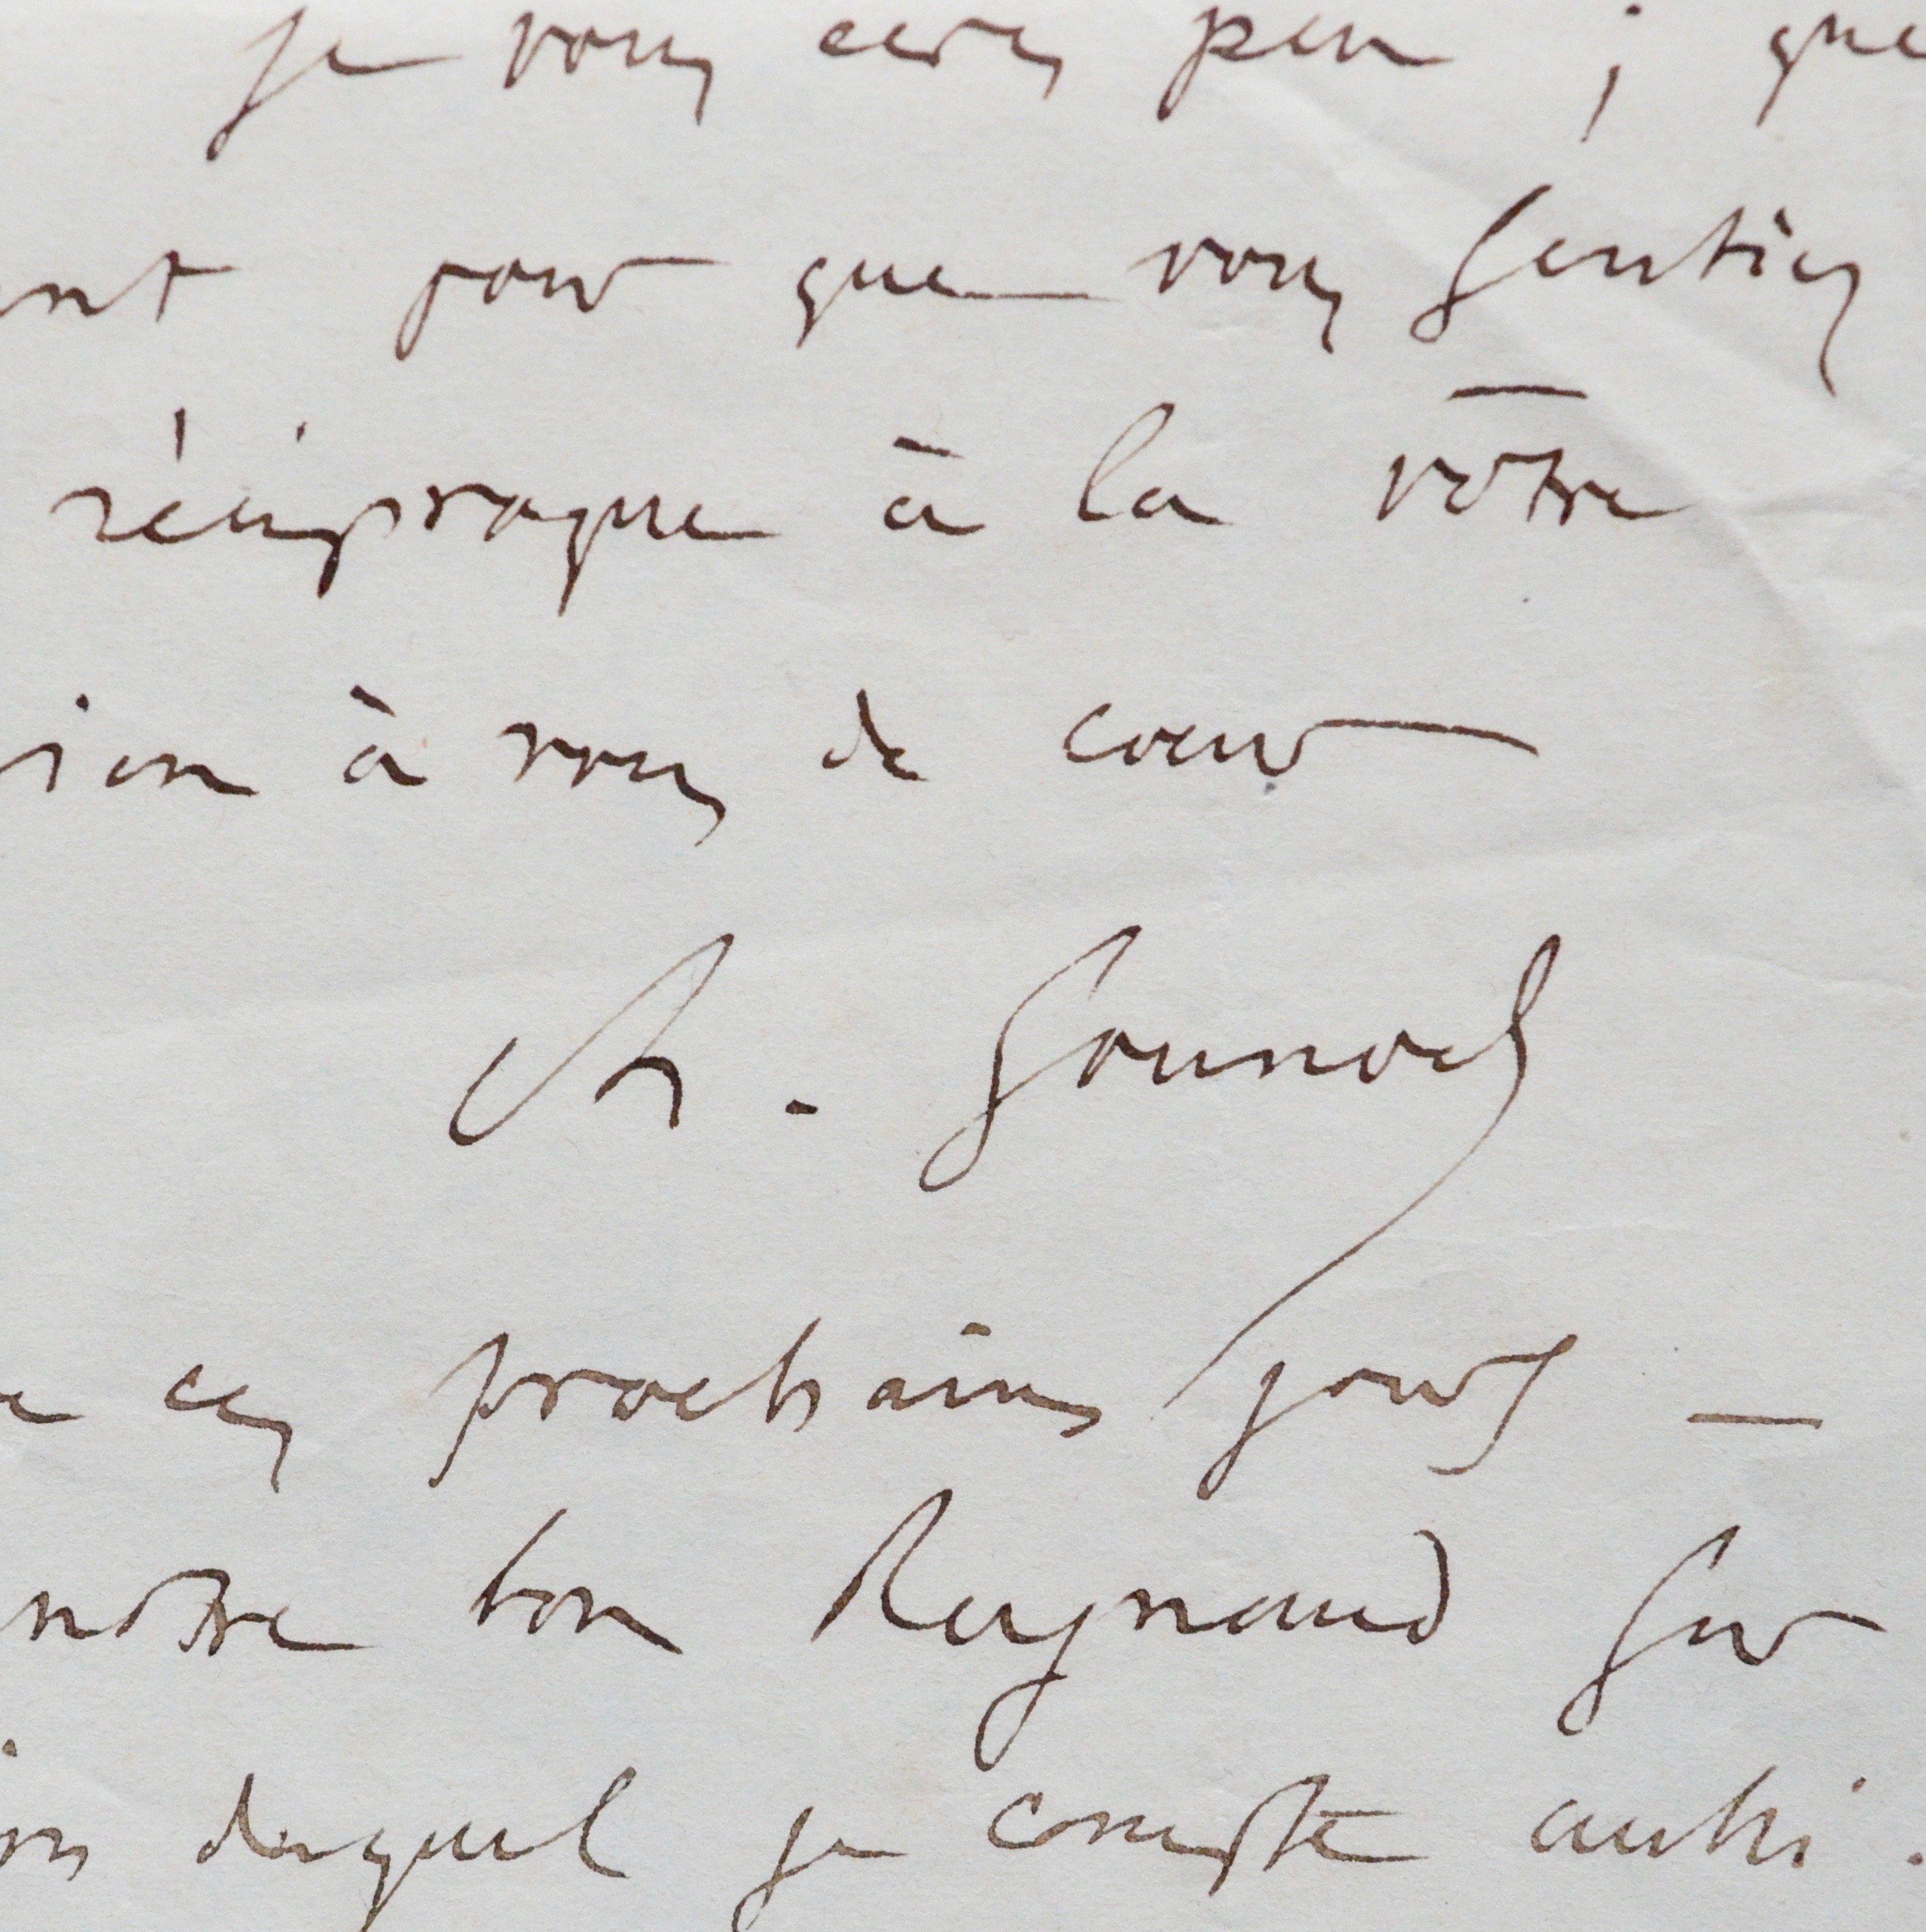 je vous écris peu ; que
nt pour que vous sentiez
réciproque à la vôtre
ion à vous de coeur
Ch. Gounod
ces prochains jours —
notre bon Reynaud sur
duquel je compte aussi.